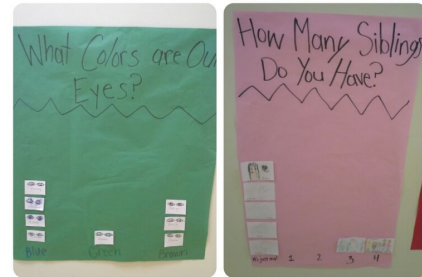 What Colors are Ou
Eyes?
Blue
Green
Brown
How Many Siblings
Do You Have?
1
2
3
4